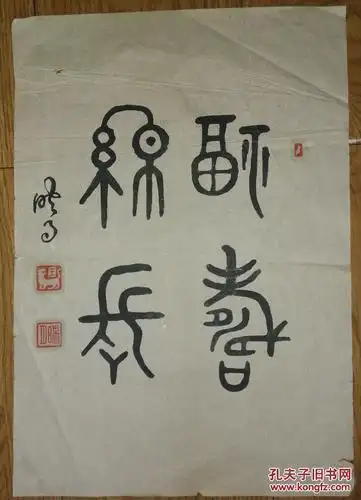 福壽
綿長
孔夫子旧书网
www.kongfz.com